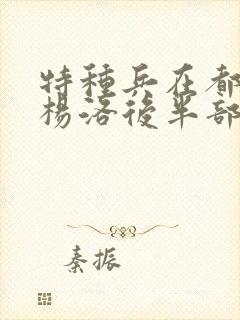 特種兵在都
楊洛後半部
秦振